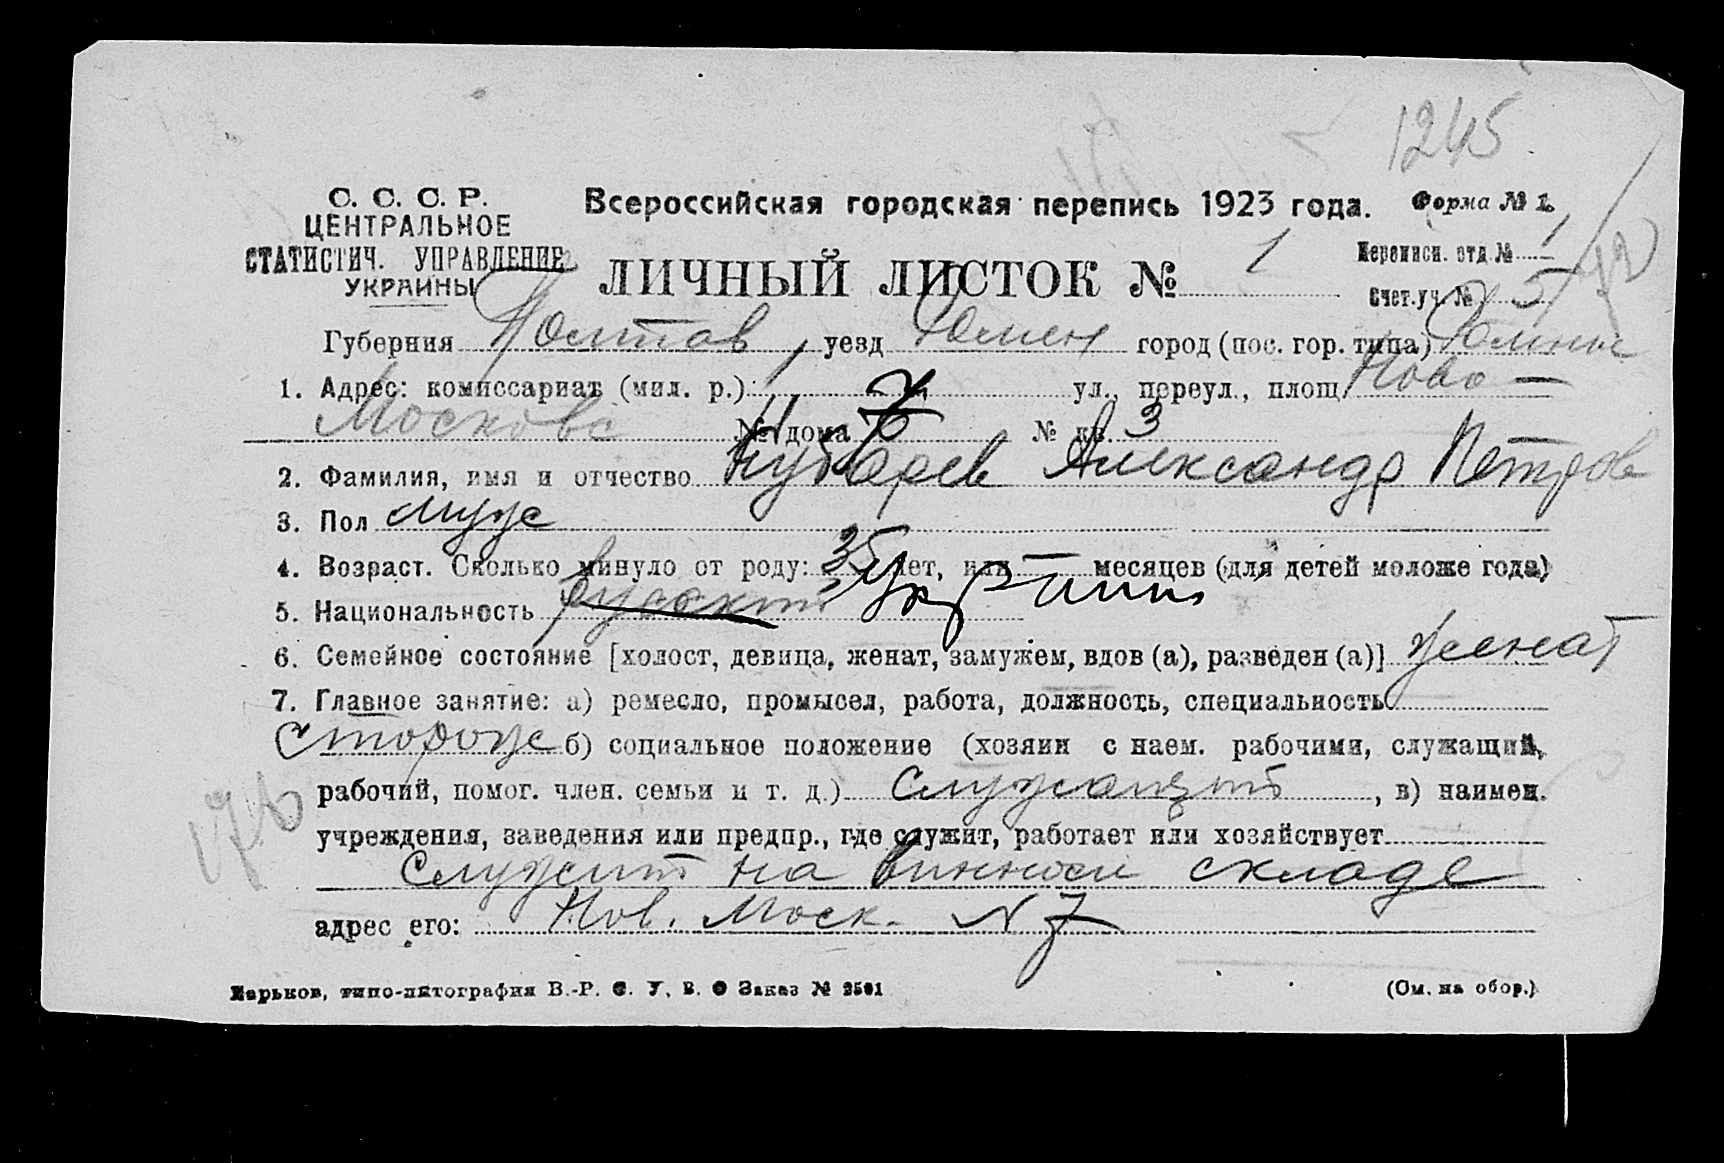 1245
С. С. С. Р.
ЦЕНТРАЛЬНОЕ
СТАТИСТИЧ. УПРАВЛЕНИЕ
УКРАИНЫ
Всероссийская городская перепись 1923 года. Форма № 1.
ЛИЧНЫЙ ЛИСТОК № 1
Переписн. отд. № 1
Счет. уч. № 5
Губерния Полтав уезд Ромен город (пос. гор. типа) Ромны
1. Адрес: комиссариат (мил. р.) ул., переул., площ. Ново-
Московс № дома № кв. 3
2. Фамилия, имя и отчество Кубарев Александр Петров
3. Пол муж
4. Возраст. Сколько минуло от роду: 35 лет, или — месяцев (для детей моложе года)
5. Национальность русский Украин
6. Семейное состояние [холост, девица, женат, замужем, вдов (а), разведен (а)] женат
7. Главное занятие: а) ремесло, промысел, работа, должность, специальность
Сторож б) социальное положение (хозяин с наем. рабочими, служащий,
рабочий, помог. член. семьи и т. д.) Служащий, в) наимен.
учреждения, заведения или предпр., где служит, работает или хозяйствует
Служит на винном складе
адрес его: Нов. Моск. N 7
Харьков, типо-литография В.-Р. С. У. В. О Заказ № 2501
(См. на обор.)